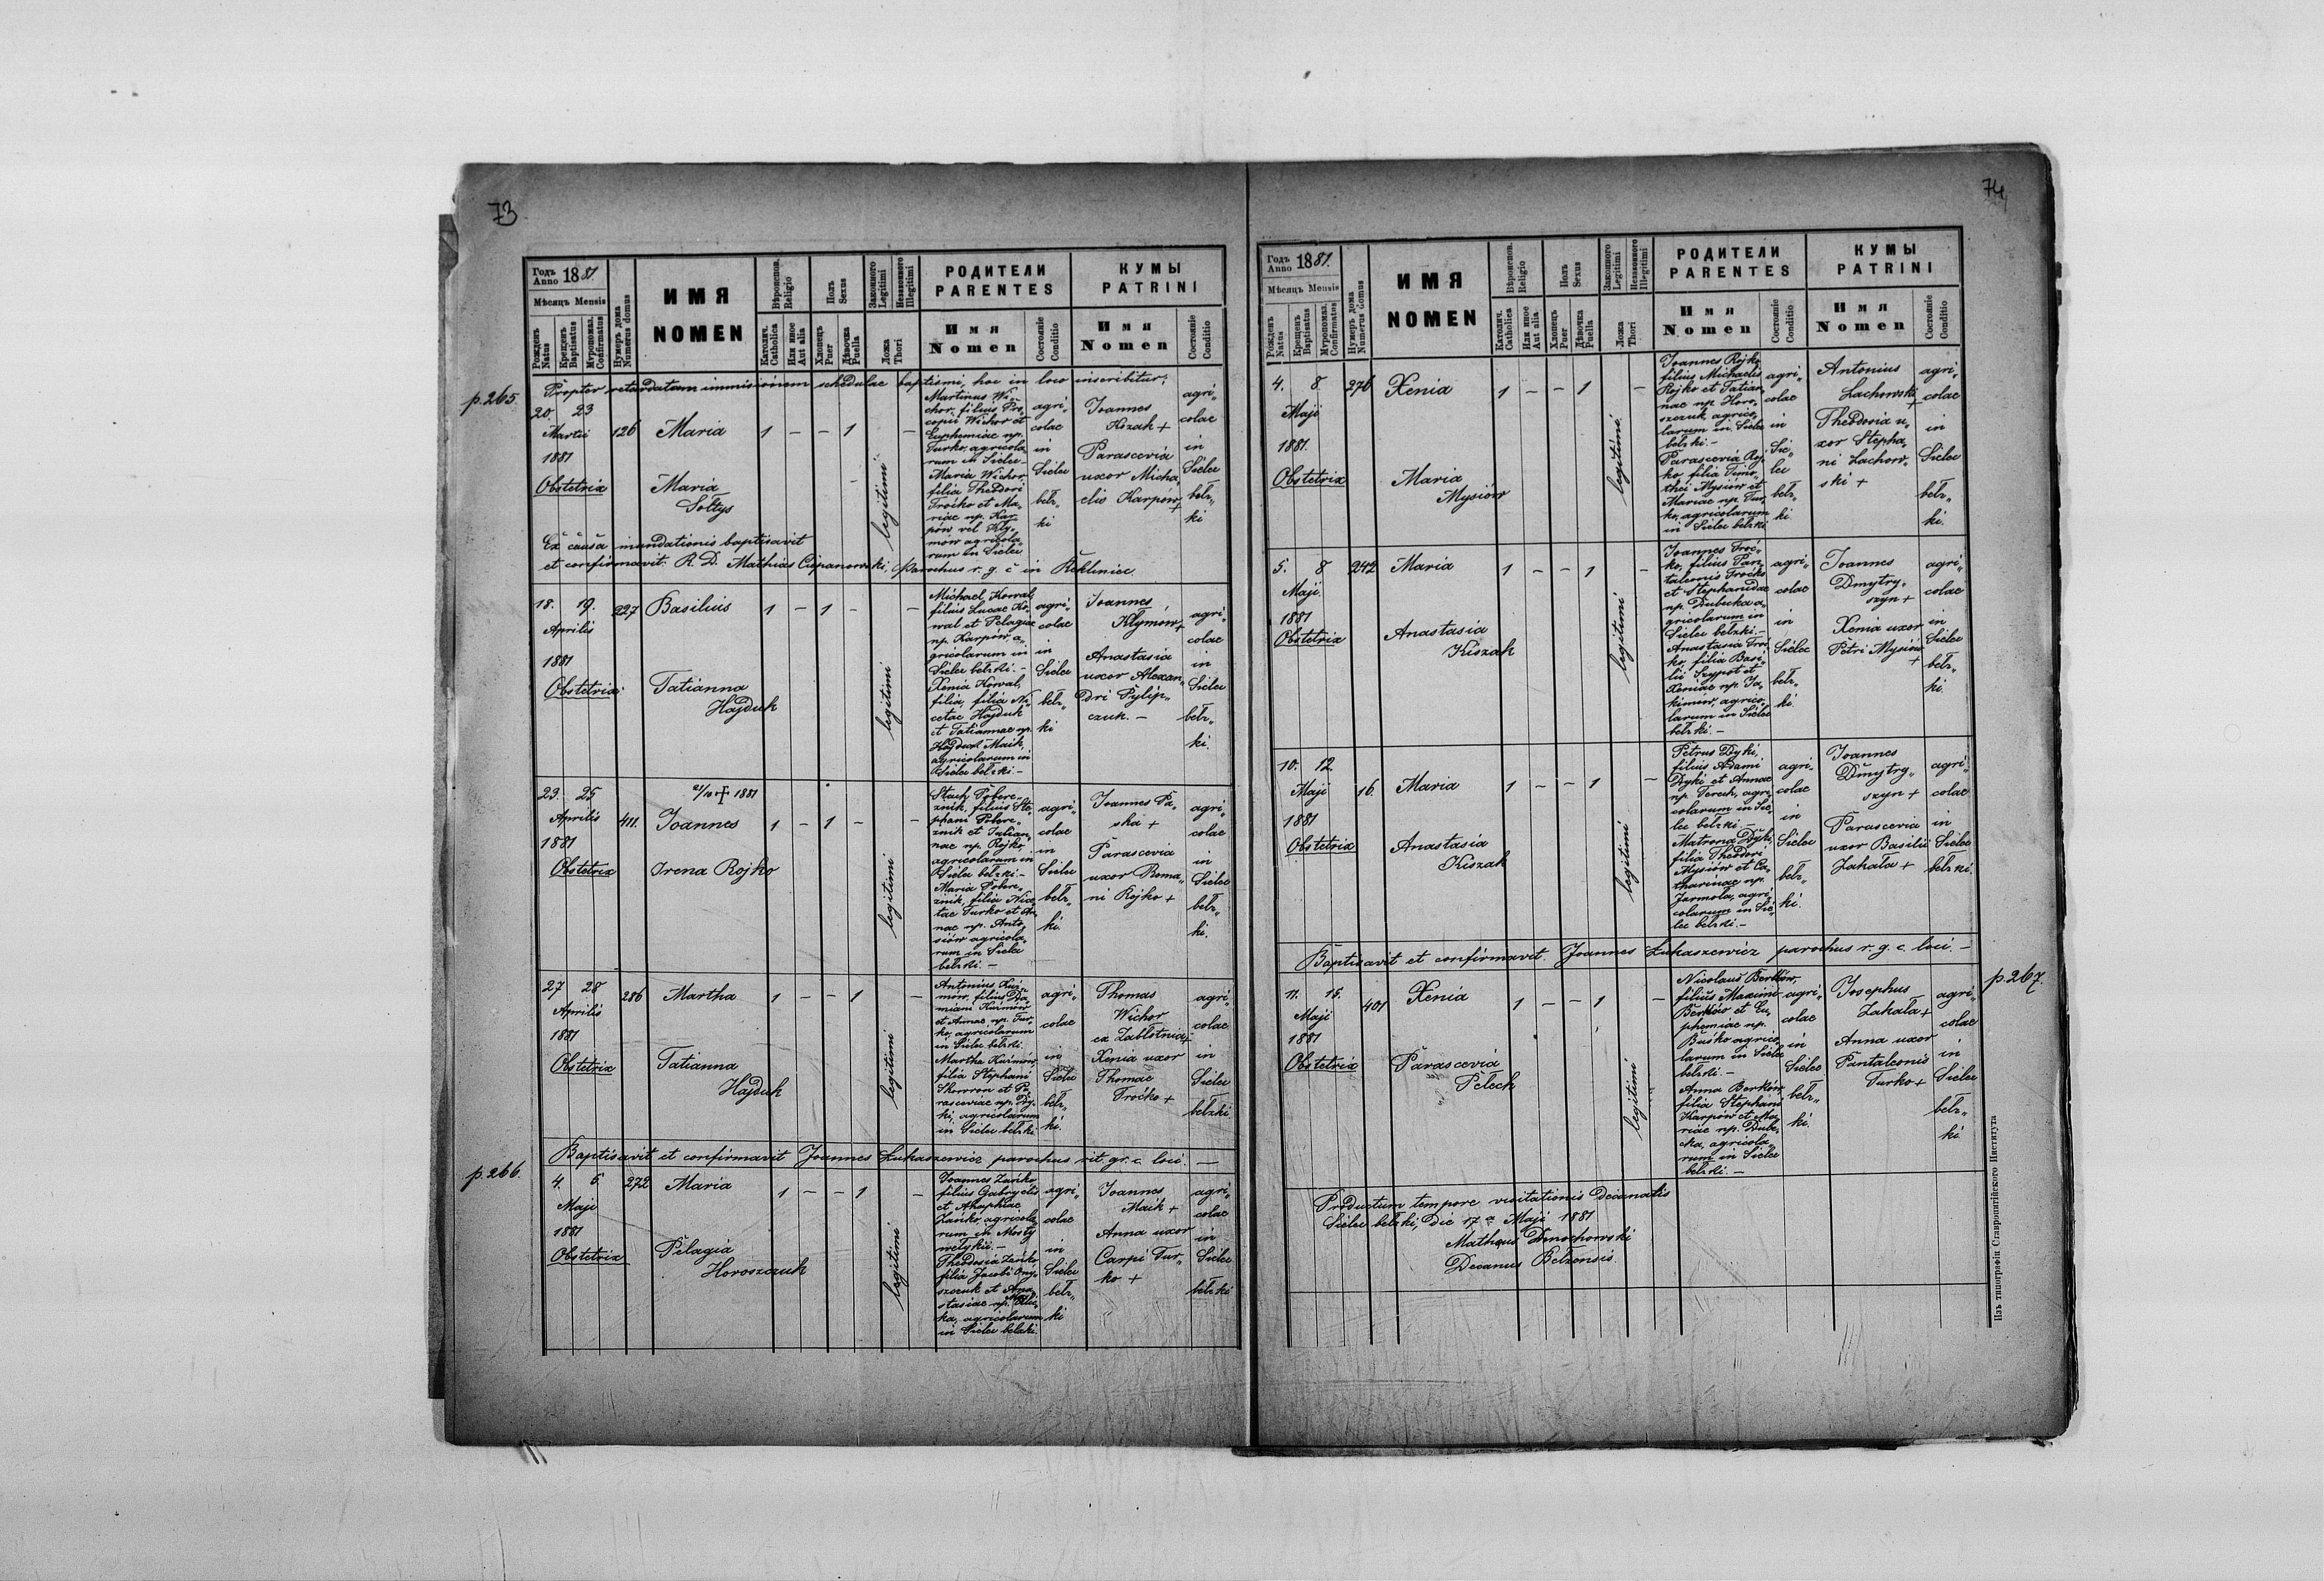 73
Годъ Anno 1881
Мѣсяцъ Mensis
Рожденъ Natus
Крещенъ Baptisatus
Муропомаз. Confirmatus
Нумеръ дома Numerus domus
ИМЯ
NOMEN
Вѣроиспов. Religio
Католич. Catholica
Или иное Aut alia
Полъ Sexus
Хлопець Puer
Дѣвочка Puella
Законного Legitimi
Незаконного Illegitimi
Ложа Thori
РОДИТЕЛИ
PARENTES
Имя
Nomen
Состояніе Conditio
КУМЫ
PATRINI
Имя
Nomen
Состояніе Conditio
p. 265
Propter retardatam immissionem schedulae baptismi, hoc in loco inscribitur:
20. 23
Martii
1881
126
Maria
1 – – 1 –
legitimi
Martinus Wi„
chor, filius Pro„
copii Wichor et
Euphemiae np.
Turko, agricola„
rum in Sielec –
Maria Wichor,
filia Theodori
Troćko et Ma„
riae np. Kar„
pów vel Kły„
mów agricola„
rum in Sielec
agri„
colae
in
Sielec
bełz„
ki
Joannes
Kiszak +
Parascevia
uxor Micha„
elis Karpów +
agri„
colae
in
Sielec
bełz„
ki
Obstetrix
Maria
Sołtys
Ex causa inundationis baptisavit
et confirmavit R. D. Mathias Ciepanowski, parochus r. g. c in
18. 19.
Aprilis
1881
227
Basilius
1 – 1 – –
legitimi
Michael Kowal,
filius Lucae Ko„
wal et Pelagiae
np. Karpów, a„
gricolarum in
Sielec bełzki. –
Xenia Kowal,
filia, filia Ni„
cetae Hajduk
et Tatiannae np.
Maik,
agricolarum in
Sielec bełzki –
agri„
colae
in
Sielec
bełz„
ki
Joannes
Kłymów +
Anastasia
uxor Alexan„
dri Pylip„
czuk. –
agri„
colae
in
Sielec
bełz„
ki.
Obstetrix:
Tatianna
Hajduk
23. 25
Aprilis
1881
411.
21/10 + 1881
Joannes
1 – 1 – –
legitimi
Stach Pobere„
żnik, filius Ste„
phani Pobere„
żnik et Julian„
nae np. Rojko,
agricolarum in
Sielec bełzki. –
Maria Pobere„
żnik, filia Nice„
tae Turko et An„
nae np. Anto„
siów agricola„
rum in Sielec
bełzki. –
agri„
colae
in
Sielec
bełz„
ki.
Joannes Pa„
ska +
Parascevia
uxor Roma„
ni Rojko +
agri„
colae
in
Sielec
bełz„
ki.
Obstetrix
Irena Rojko
27 28
Aprilis
1881
286
Martha
1 – – 1 –
legitimi
Antonius Kuź„
mów, filius Da„
miani Kuźmów
et Annae np. Tur„
ko, agricolarum
in Sielec bełzki.
Martha Kuźmów
filia Stephani
Skowron et Pa„
rasceviae np. Dy„
ki, agricolarum
in Sielec bełzki.
agri„
colae
in
Sielec
bełz„
ki.
Thomas
Wichor
ex Zabłotnia +
Xenia uxor
Thomae
Troćko +
agri„
colae
in
Sielec
bełzki
Obstetrix
Tatianna
Hajduk
Baptisavit et confirmavit Joannes Łukaszewicz parochus rit. gr. c. loci. –
p. 266.
4. 5.
Maji
1881
272
Maria
1 – – 1 –
legitimi
Joannes Zańko
filius Gabryelis
et Ahaphiae
Zańko, agricola„
rum in Mosty
wełykii. –
Theodosia Zańko
filia Jacobi Ony„
szczuk et Ana„
stasiae np.
ka, agricolarum
in Sielec bełzki.
agri„
colae
in
Sielec
bełz„
ki
Joannes
Maik +
Anna uxor
Carpi Tur„
ko +
agri„
colae
in
Sielec
bełzki
Obstetrix
Pelagia
Horoszczuk
74
Годъ Anno 1881.
Мѣсяцъ Mensis
Рожденъ Natus
Крещенъ Baptisatus
Муропомаз. Confirmatus
Нумеръ дома Numerus domus
ИМЯ
NOMEN
Вѣроиспов. Religio
Католич. Catholica
Или иное Aut alia
Полъ Sexus
Хлопець Puer
Дѣвочка Puella
Законного Legitimi
Незаконного Illegitimi
Ложа Thori
РОДИТЕЛИ
PARENTES
Имя
Nomen
Состояніе Conditio
КУМЫ
PATRINI
Имя
Nomen
Состояніе Conditio
4. 8
Maji
1881.
276
Xenia
1 – – 1 –
legitimi
Joannes Rojko
filius Michaelis
Rojko et Tatian„
nae np. Horo„
szczuk agrico„
larum in Sielec
bełzki. –
Parascevia Roj„
ko, filia Timo„
thei Mysiów et
Mariae np. Tur„
ko, agricolarum
in Sielec bełzki
agri„
colae
in
Sie„
lec
bełz„
ki.
Antonius
Lachowski +
Theodosia u„
xor Stepha„
ni Lachow„
ski +
agri„
colae
in
Sielec
bełz„
ki.
Obstetrix
Maria
Mysiów
5. 8
Maji.
1881
242
Maria
1 – – 1 –
legitimi
Joannes Troć„
ko, filius Pan„
taleonis Troćko
et Stephanidae
np. Dubecka a„
gricolarum in
Sielec bełzki. –
Anastasia Troć„
ko, filia Basi„
lii Szypot et
Xeniae np. Ja„
kimów, agrico„
larum in Sielec
bełzki. –
agri„
colae
in
Sielec
bełz„
ki.
Joannes
Dmytry„
szyn +
Xenia uxor
Petri Mysiów +
agri„
colae
in
Sielec
bełz„
ki.
Obstetrix
Anastasia
Kiszak
10. 12.
Maji
1881
16.
Maria
1 – – 1 –
legitimi
Petrus Dyki,
filius Adami
Dyki et Annae
np. Terech, agri„
colarum in Sie„
lec bełzki. –
Matrona Dyki,
filia Theodori
Mysiów et Ca„
tharinae np.
Jarmola, agri„
colarum in Sie„
lec bełzki. –
agri„
colae
in
Sielec
bełz„
ki.
Joannes
Dmytry„
szyn +
Parascevia
uxor Basilii
Zahała +
agri„
colae
in
Sielec
bełzki.
Obstetrix
Anastasia
Kiszak
Baptisavit et confirmavit. Joannes Łukaszewicz parochus r. g. c. loci. –
p. 267.
11. 15.
Maji
1881
401
Xenia
1 – – 1 –
legitimi
Nicolaus Berków,
filius Maximi
Berków et Eu„
phemiae np.
Buśko agrico„
larum in Sielec
bełzki. –
Anna Berków,
filia Stephani
Karpów et Ma„
riae np. Dube„
cka, agricola„
rum in Sielec
bełzki. –
agri„
colae
in
Sielec
bełz„
ki.
Josephus
Zahała +
Anna uxor
Pantaleonis
Turko +
agri„
colae
in
Sielec
bełz„
ki.
Obstetrix
Parascevia
Pelech
Productum tempore visitationis Decanatis
Sielec bełzki, die 17 a Maji 1881
Matheus Dmochowski
Decanus Bełzensis.
Изъ типографіи Ставропигійского Института